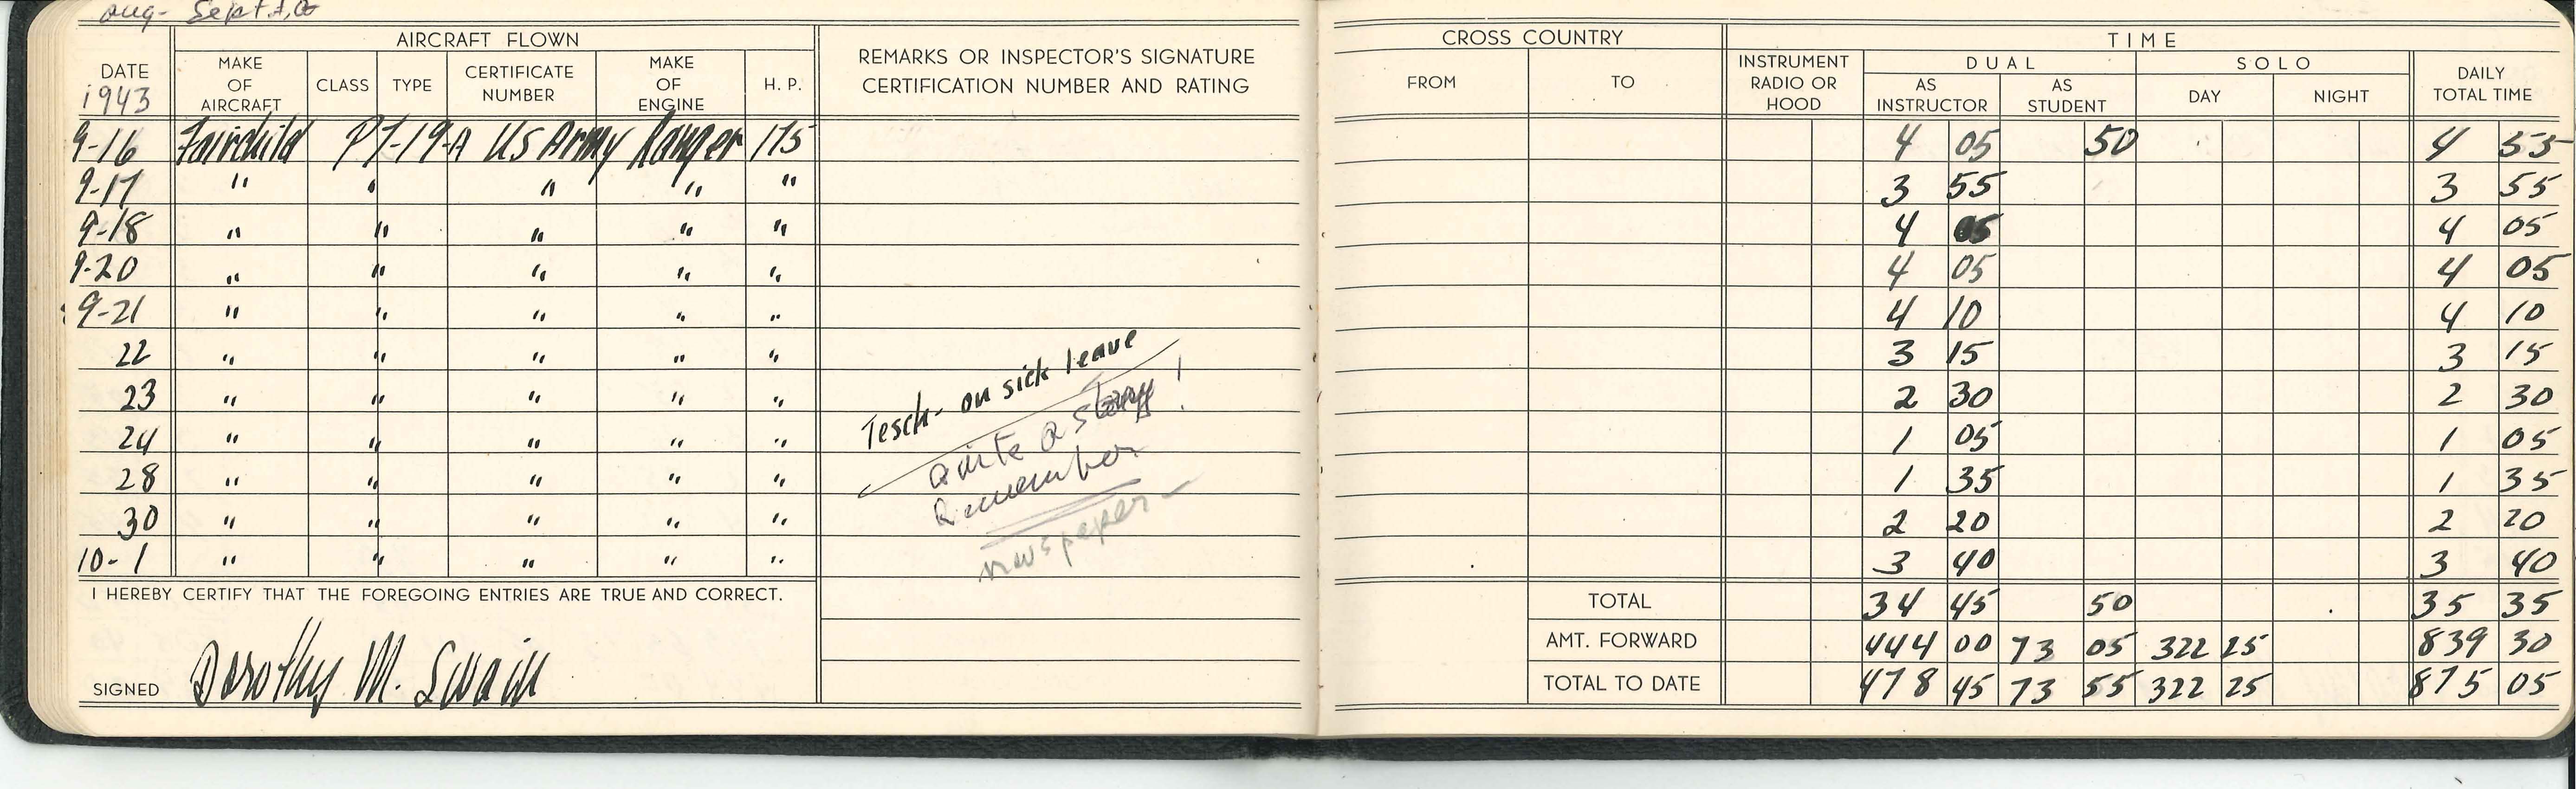 Aug- Sept
AIRCRAFT FLOWN
REMARKS OR INSPECTOR'S SIGNATURE
CERTIFICATION NUMBER AND RATING
CROSS COUNTRY
TIME
DATE
1943
MAKE
OF
AIRCRAFT
CLASS
TYPE
CERTIFICATE
NUMBER
MAKE
OF
ENGINE
H. P.
FROM
TO
INSTRUMENT
RADIO OR
HOOD
DUAL
AS
INSTRUCTOR
AS
STUDENT
SOLO
DAY
NIGHT
DAILY
TOTAL TIME
9-16 Fairchild PT-19-A US Army Ranger 175 4 05 50 4 55
9-17 " " " " " 3 55 3 55
9-18 " " " " " 4 05 4 05
9-20 " " " " " 4 05 4 05
9-21 " " " " " 4 10 4 10
22 " " " " " 3 15 3 15
23 " " " " " 2 30 2 30
24 " " " " " 1 05 1 05
28 " " " " " 1 35 1 35
30 " " " " " 2 20 2 20
10-1 " " " " " 3 40 3 40
Tesch- on sick leave
Quite a story!
Remember
newspaper
I HEREBY CERTIFY THAT THE FOREGOING ENTRIES ARE TRUE AND CORRECT.
SIGNED Dorothy M. Swain
TOTAL 34 45 50 35 35
AMT. FORWARD 444 00 73 05 322 25 839 30
TOTAL TO DATE 478 45 73 55 322 25 875 05